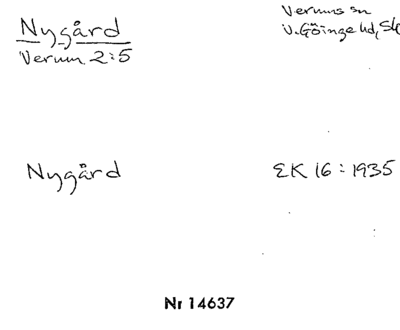 Nygård
Verum 2:5
Verums sn
V. Göinge hd, Sk
Nygård
EK 16:1935
Nr 14637